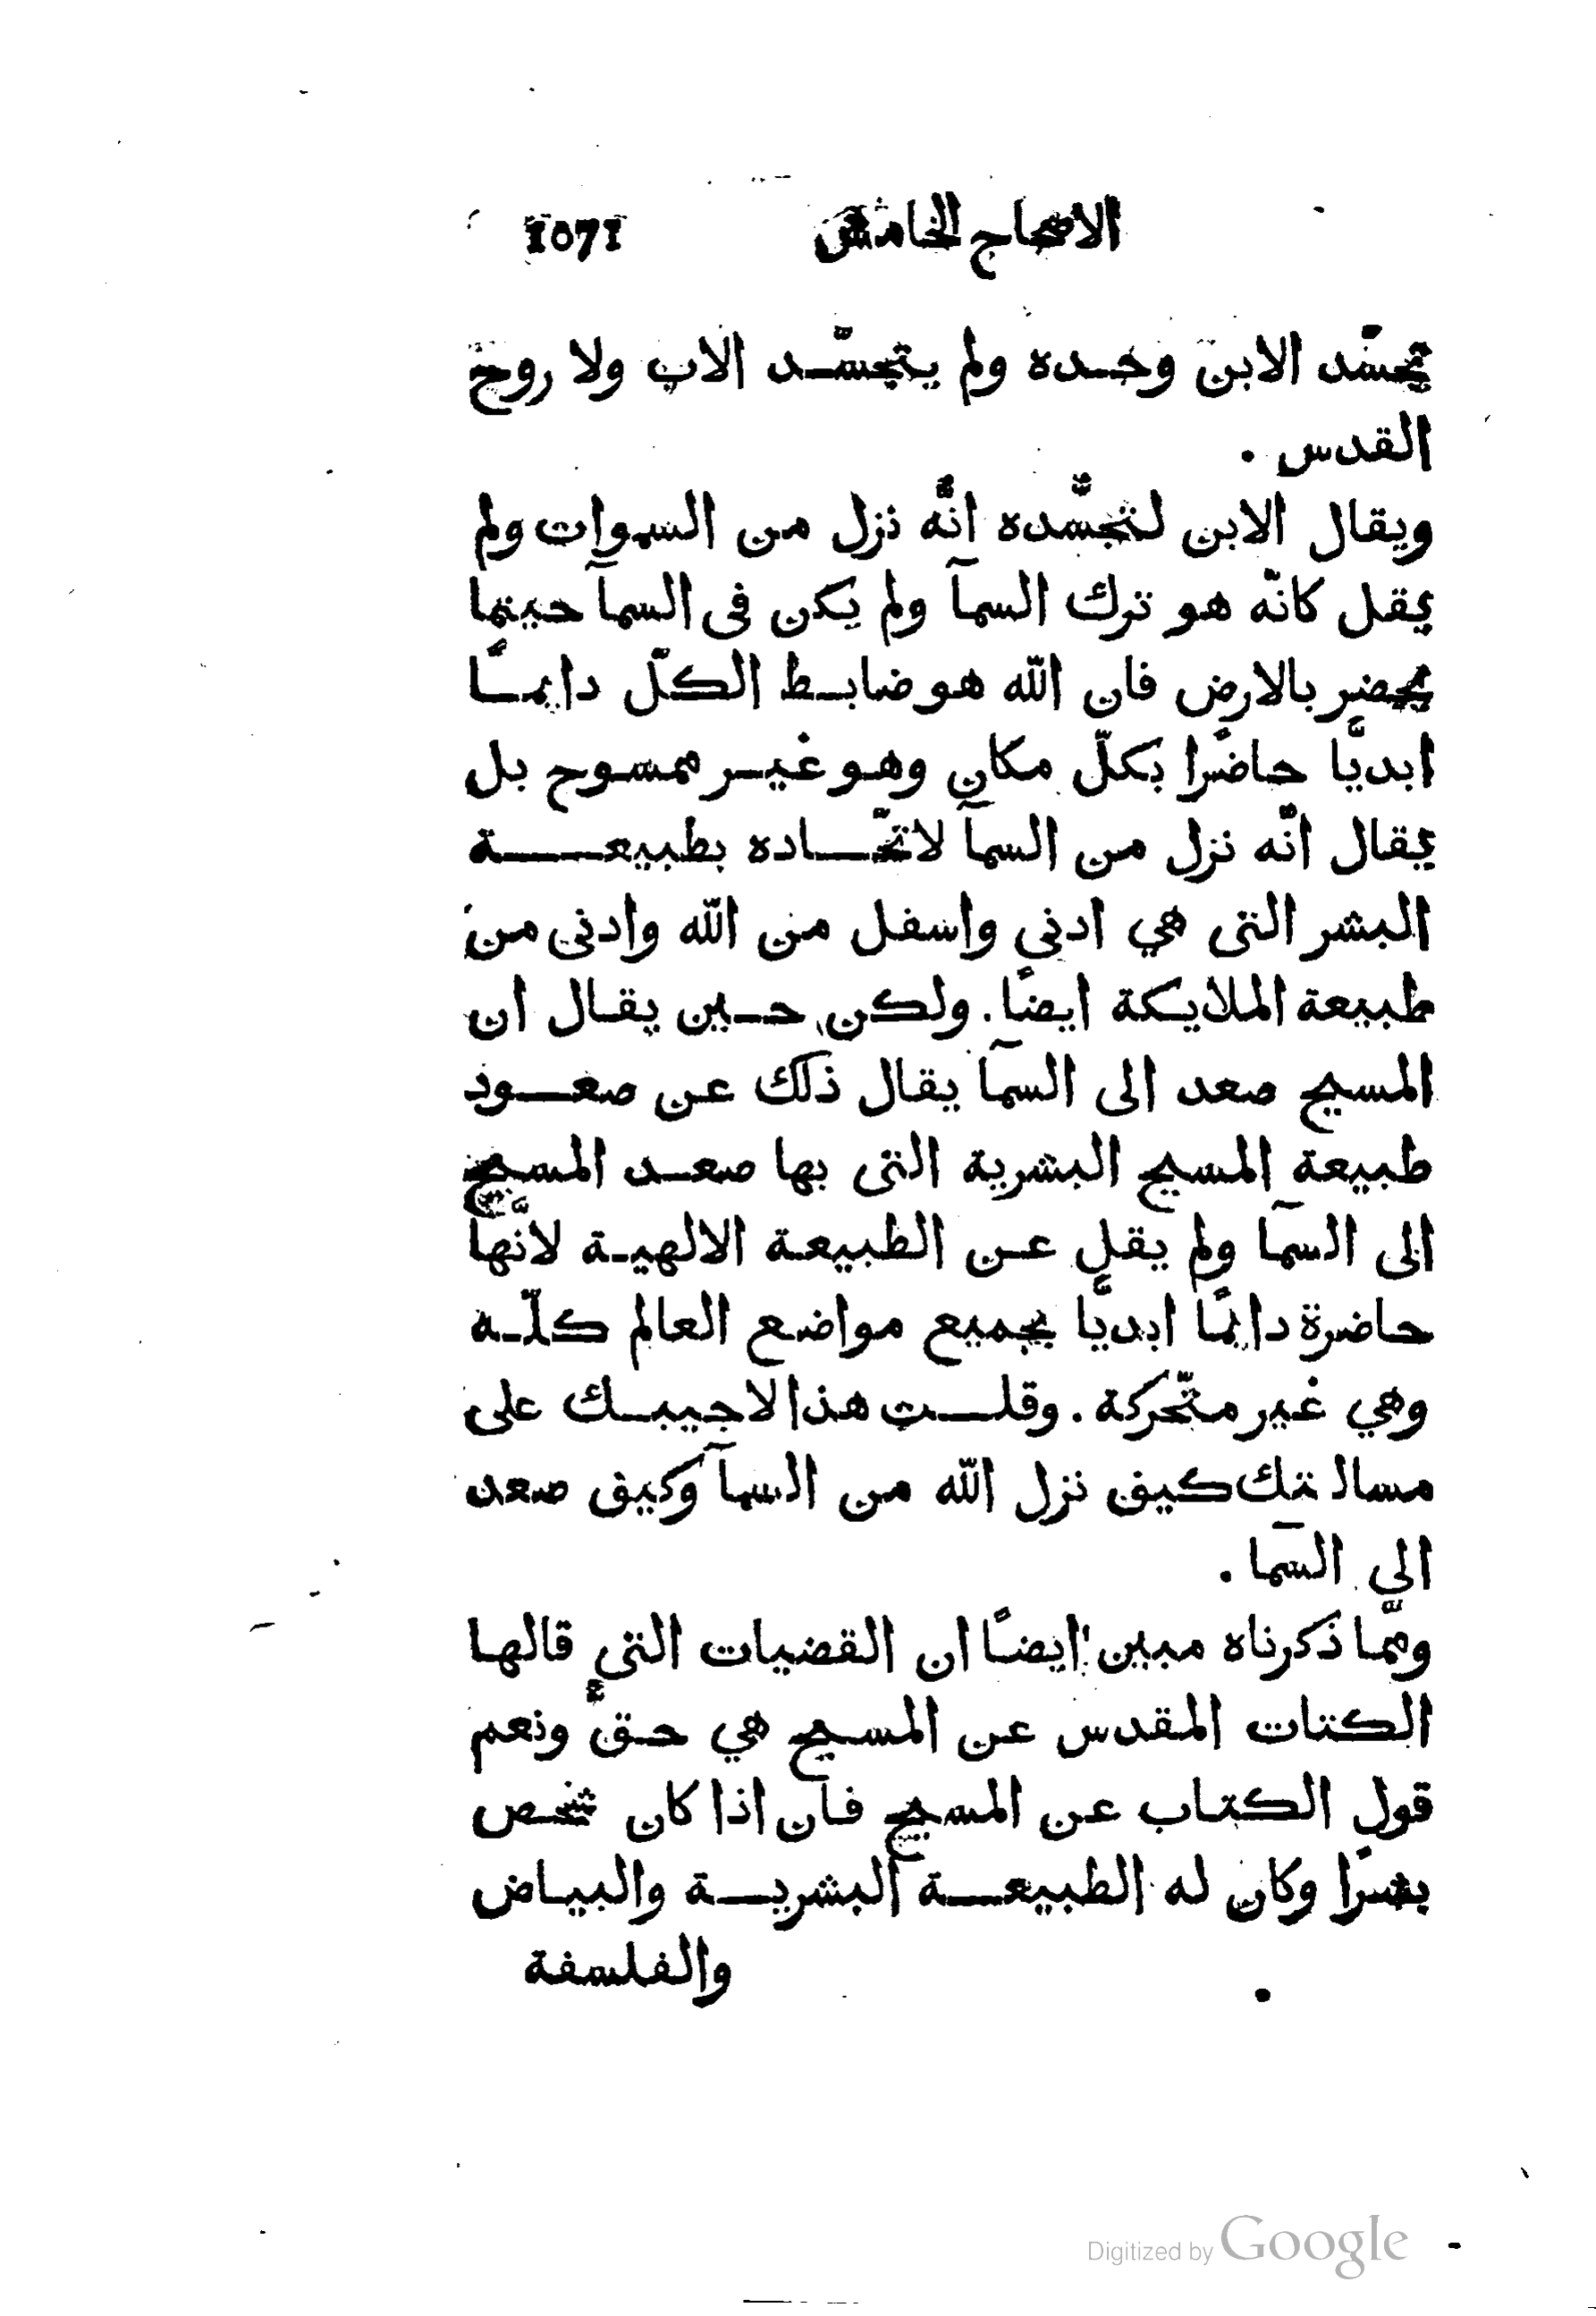 الاصحاح الخامس 1071
تجسّد الابن وحده ولم يتجسّد الاب ولا روح
القدس .
ويقال الابن لتجسّده انّه نزل من السموات ولم
يقل كانّه هو ترك السمآ ولم يكن فى السمآ حينما
يحضر بالارض فان اللّه هو ضابط الكلّ دايمًا
ابديًّا حاضرًا بكلّ مكان وهو غير ممسوح بل
يقال انّه نزل من السمآ لاتّحاده بطبيعة
البشر التى هي ادني واسفل من اللّه وادنى من
طبيعة الملايكة ايضًا. ولكن حين يقال ان
المسيح صعد الى السمآ يقال ذلك عن صعود
طبيعة المسيح البشرية التى بها صعد المسيح
الى السمآ ولم يقل عن الطبيعة الالهية لانّها
حاضرة دايمًا ابديًّا بجميع مواضع العالم كلّه
وهي غير متّحركة . وقلت هذا لاجيبك على
مسالتك كيف نزل اللّه من السمآ وكيف صعد
الي السمآ .
وممّا ذكرناه مبين ايضًا ان القضيات التي قالها
الكتات المقدس عن المسيح هي حقّ ونعم
قول الكتاب عن المسيح فان اذا كان شخص
بشرًا وكان له الطبيعة البشرية والبياض
والفلسفة
Digitized by Google